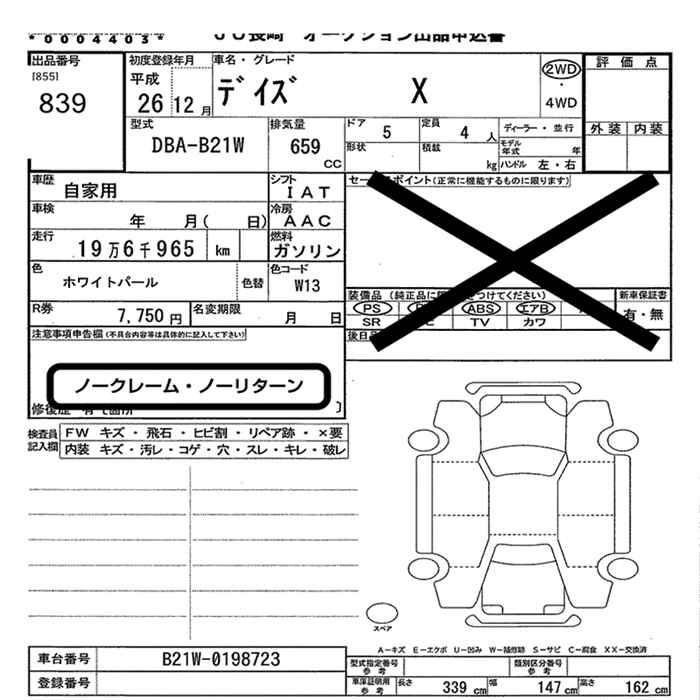 *0004403*
ＪＵ長崎 オークション出品申込書
出品番号
[855]
839
初度登録年月
平成
26 12 月
車名・グレード
デイズ X
2WD
・
4WD
評価点
外装 内装
型式
DBA-B21W
排気量
659
CC
ドア 5
定員 4 人
ディーラー・並行
形状
積載 kg
モデル年式 年
ハンドル 左・右
車歴 自家用
シフト IAT
セー ポイント(正常に機能するものに限ります)
車検 年 月( 日)
冷房 AAC
走行 19万6千965 km
燃料 ガソリン
色 ホワイトパール
色替
色コード W13
装備品 (純正品に つけてください)
PS ABS エアB
SR TV カワ
新車保証書
有・無
R券 7,750 円
名変期限 月 日
後日
注意事項申告欄(不具合内容等は具体的に記入して下さい)
ノークレーム・ノーリターン
修復歴
検査員記入欄
FW キズ・飛石・ヒビ割・リペア跡・×要
内装 キズ・汚レ・コゲ・穴・スレ・キレ・破レ
スペア
A－キズ E－エクボ U－凹み W－補修跡 S－サビ C－腐食 XX－交換済
車台番号 B21W-0198723
登録番号
型式指定番号 参考
類別区分番号 参考
車庫証明用 参考
長さ 339 cm 幅 147 cm 高さ 162 cm